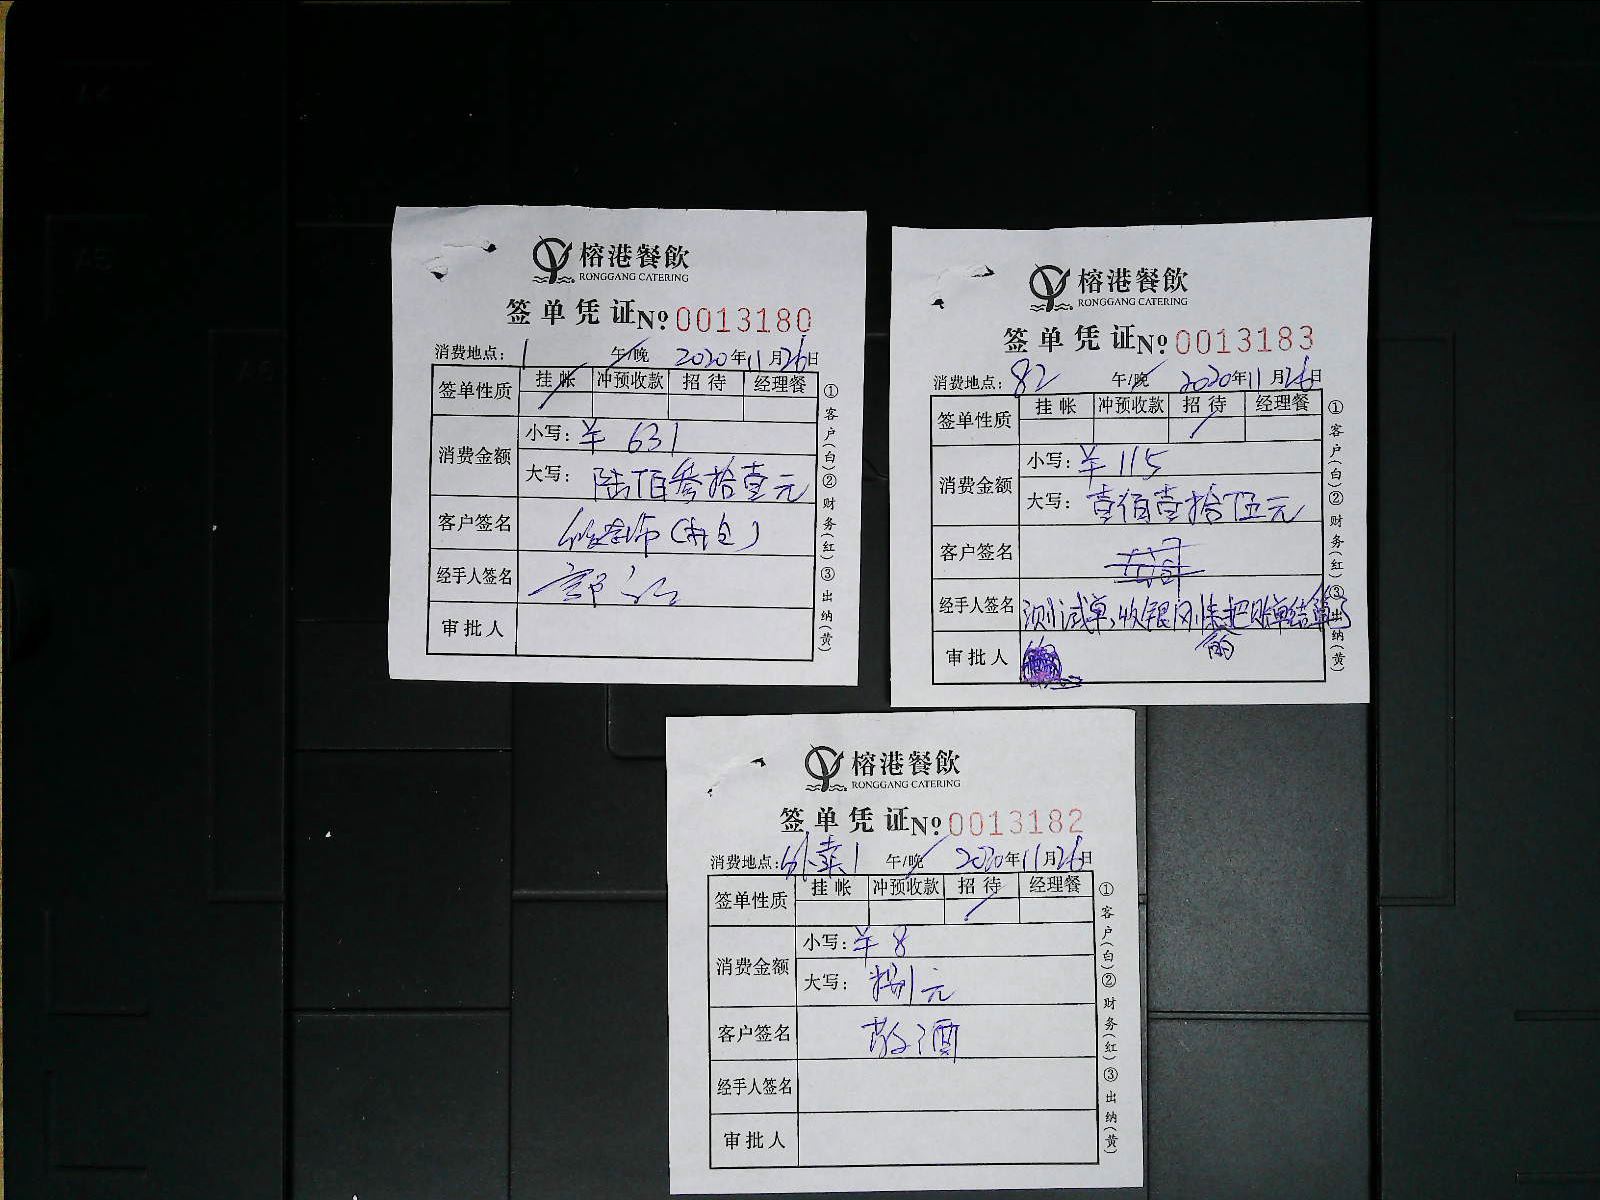 榕港餐飲
RONGGANG CATERING
签单凭证 No: 0013180
消费地点: 1 午/晚 2020年11月26日
签单性质 挂帐 冲预收款 招待 经理餐
消费金额 小写: ¥ 631
大写: 陆佰叁拾壹元
客户签名
经手人签名
审批人
①客户(白)②财务(红)③出纳(黄)
榕港餐飲
RONGGANG CATERING
签单凭证 No: 0013183
消费地点: 82 午/晚 2020年11月26日
签单性质 挂帐 冲预收款 招待 经理餐
消费金额 小写: ¥ 115
大写: 壹佰壹拾伍元
客户签名
经手人签名 测试单,收银 把账单结
审批人
①客户(白)②财务(红)③出纳(黄)
榕港餐飲
RONGGANG CATERING
签单凭证 No: 0013182
消费地点: 外卖1 午/晚 2020年11月26日
签单性质 挂帐 冲预收款 招待 经理餐
消费金额 小写: ¥ 8
大写: 捌元
客户签名 敬酒
经手人签名
审批人
①客户(白)②财务(红)③出纳(黄)